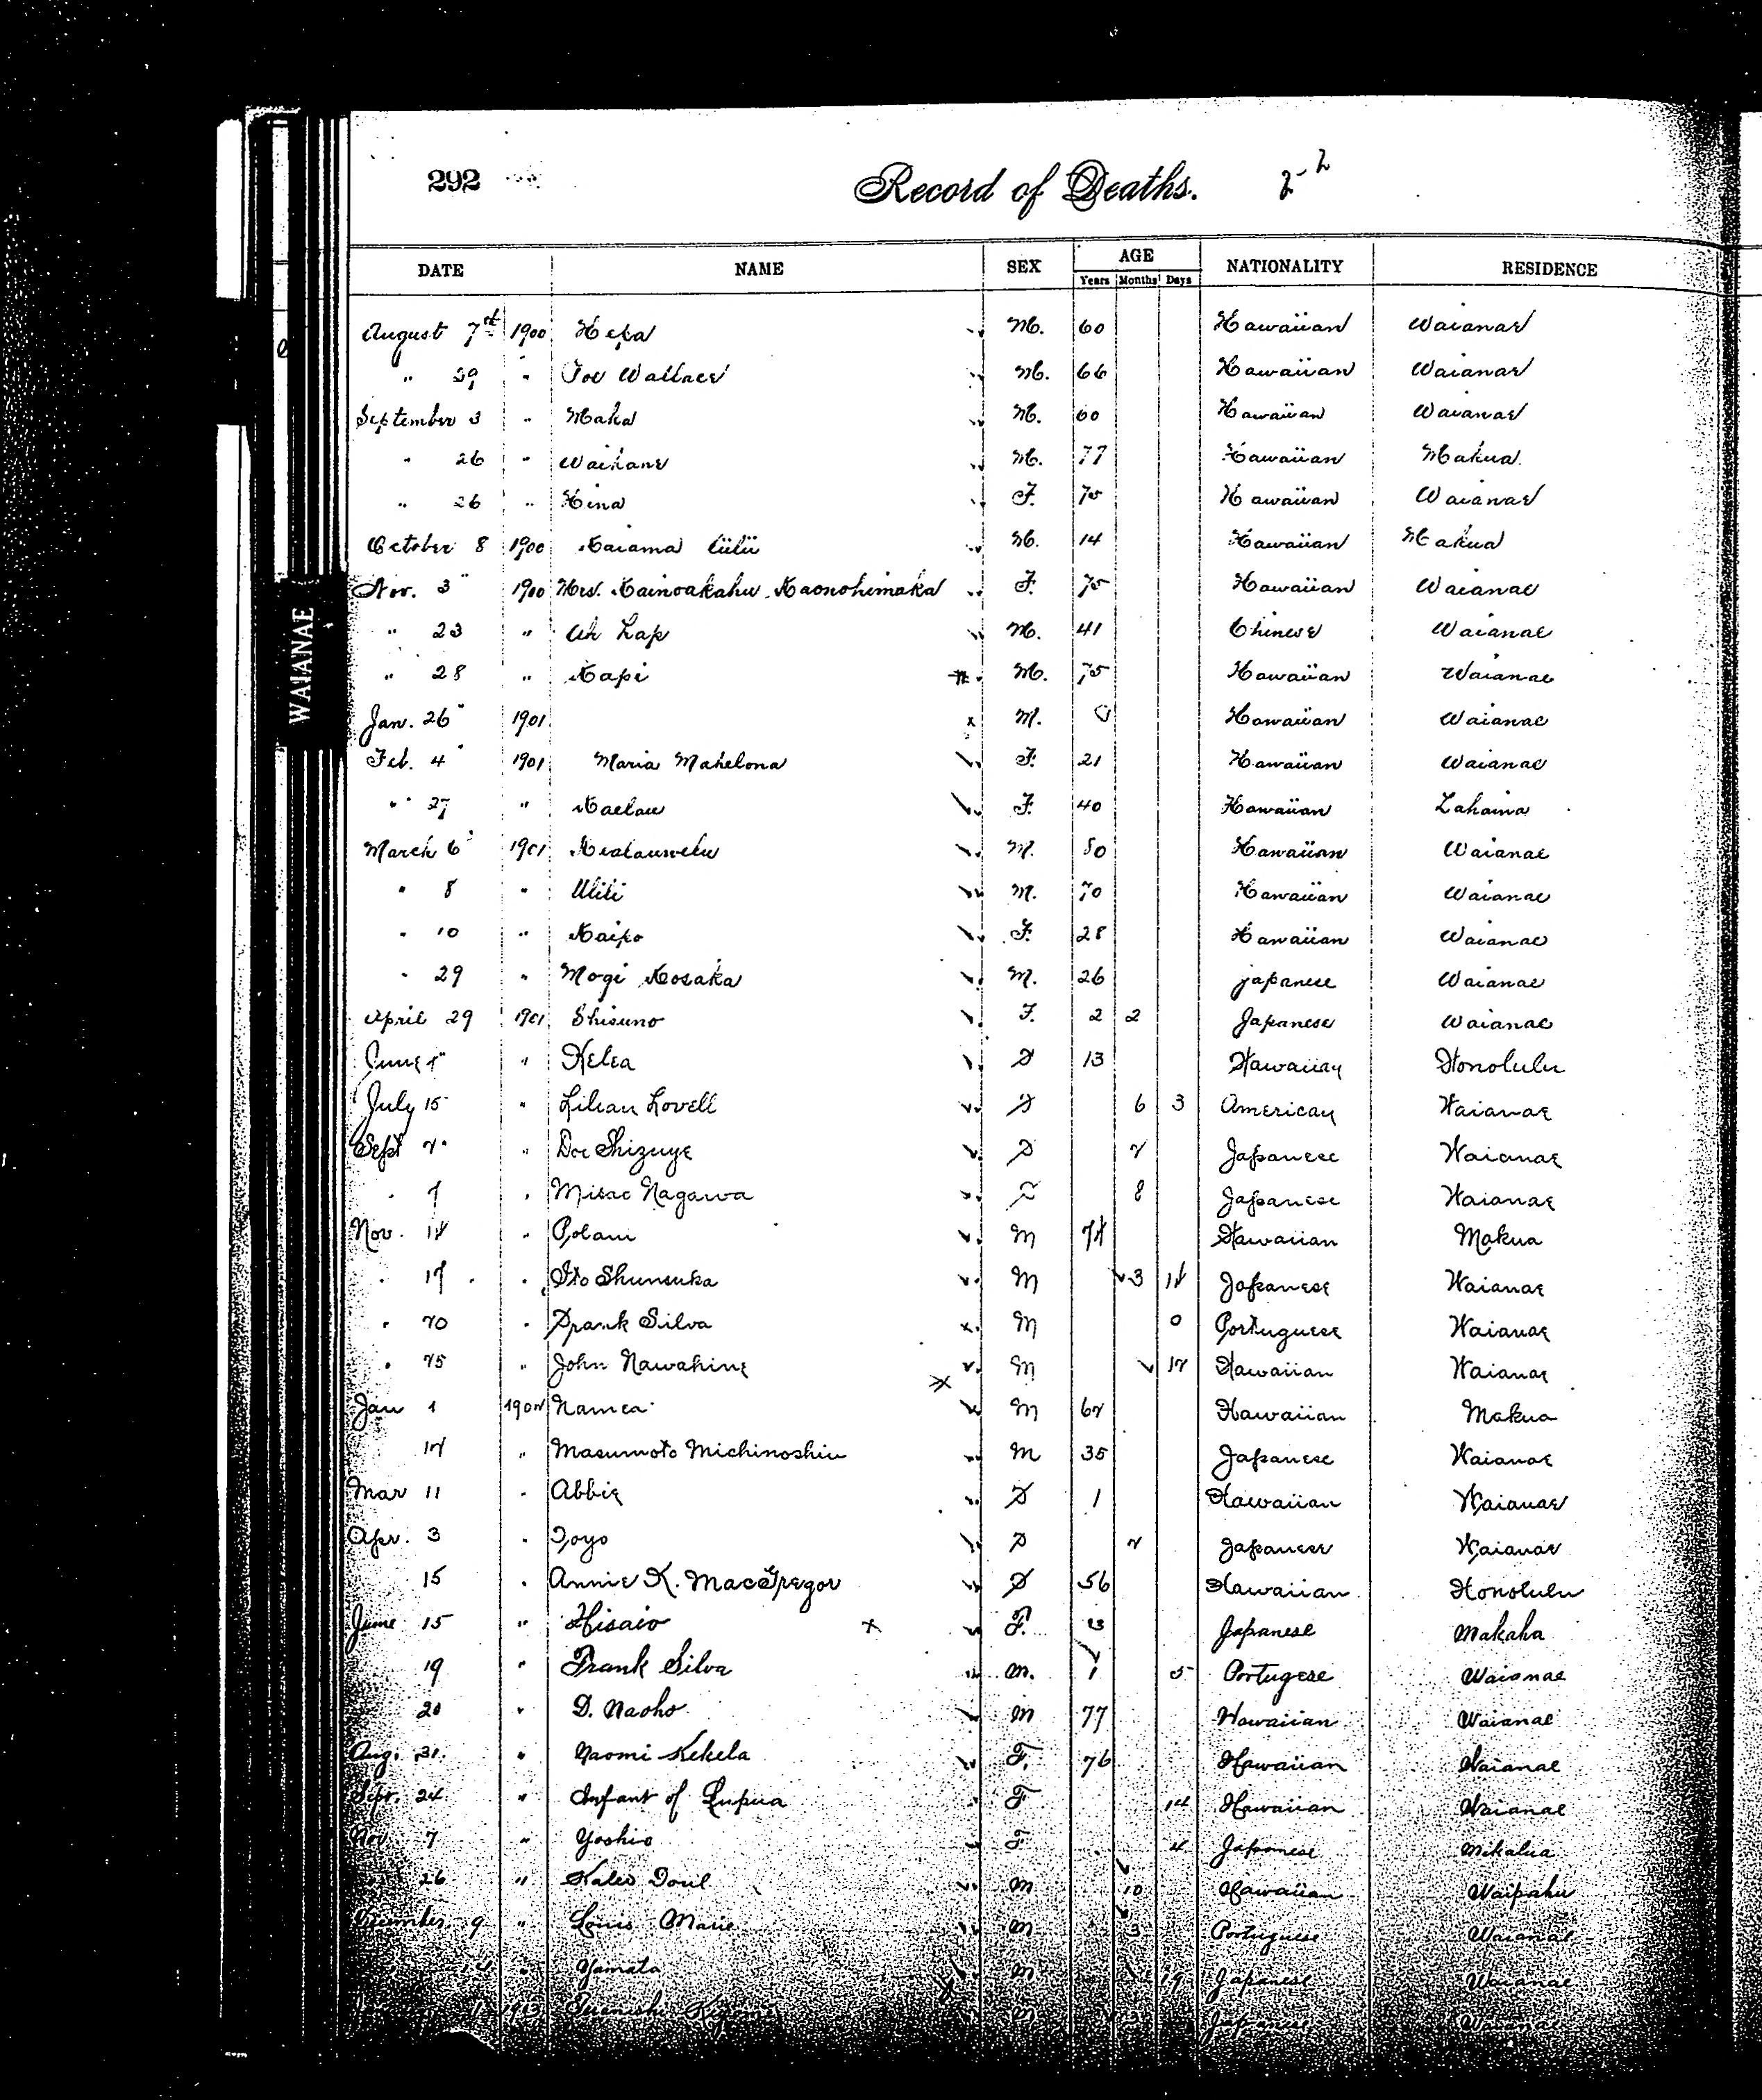 292
Record of Deaths.
DATE NAME SEX AGE NATIONALITY RESIDENCE
Years Months Days
WAIANAE
August 7th 1900 Hepa M. 60 Hawaiian Waianae
" 29 " Joe Wallace M. 66 Hawaiian Waianae
September 3 " Maka M. 60 Hawaiian Waianae
" 26 " Waikane M. 77 Hawaiian Makua
" 26 " Hina F. 75 Hawaiian Waianae
October 8 1900 Kaiama liilii M. 14 Hawaiian Makua
Nov. 3" 1900 Mrs. Kainoakahu Kaonohimaka F. 75 Hawaiian Waianae
" 23 " Ah Lap M. 41 Chinese Waianae
" 28 " Kapi M. 75 Hawaiian Waianae
Jan. 26" 1901 x M. 0 Hawaiian Waianae
Feb. 4" 1901 Maria Mahelona F. 21 Hawaiian Waianae
" 27 " Kaelau F. 40 Hawaiian Lahaina
March 6" 1901 M. 50 Hawaiian Waianae
" 8 " Wili M. 70 Hawaiian Waianae
" 10 " Kaipo F. 28 Hawaiian Waianae
" 29 " Mogi Kosaka M. 26 japanese Waianae
April 29 1901 Shisuno F. 2 2 Japanese Waianae
June " Kelea F 13 Hawaiian Honolulu
July 15 " Lilian Lovell F 6 3 American Waianae
Sept 2 " Doe Shizuye F 2 Japanese Waianae
" 7 " Misao Nagawa F 8 Japanese Waianae
Nov. 14 " Polani M 74 Hawaiian Makua
" 17 " Ito Shunsuka M 3 14 Japanese Waianae
" 20 " Frank Silva x M 0 Portuguese Waianae
" 25 " John Nawahine M 12 Hawaiian Waianae
Jan 1 1902 Namea M 62 Hawaiian Makua
12 " Masumoto Michinoshiu M 35 Japanese Waianae
Mar 11 " Abbie F 1 Hawaiian Waianae
Apr. 3 " Toyo F 2 Japanese Waianae
15 " Annie K. MacGregor F 56 Hawaiian Honolulu
June 15 " Hisaio x F. 3 Japanese Makaha
19 " Frank Silva M. 1 5 Portugese Waianae
20 " D. Naoho M 77 Hawaiian Waianae
Aug. 31. " Naomi Kekela F. 76 Hawaiian Waianae
Sept. 24 " Infant of Lupua F 14 Hawaiian Waianae
Nov 7 " Yoshio F 4 Japanese Mikalua
26 " Kaleo Doul M 10 Hawaiian Waipahu
December 9 " Louis Marie M 3 Portuguese Waianae
14 " Yamata M 19 Japanese Waianae
1903 M Japanese Waianae